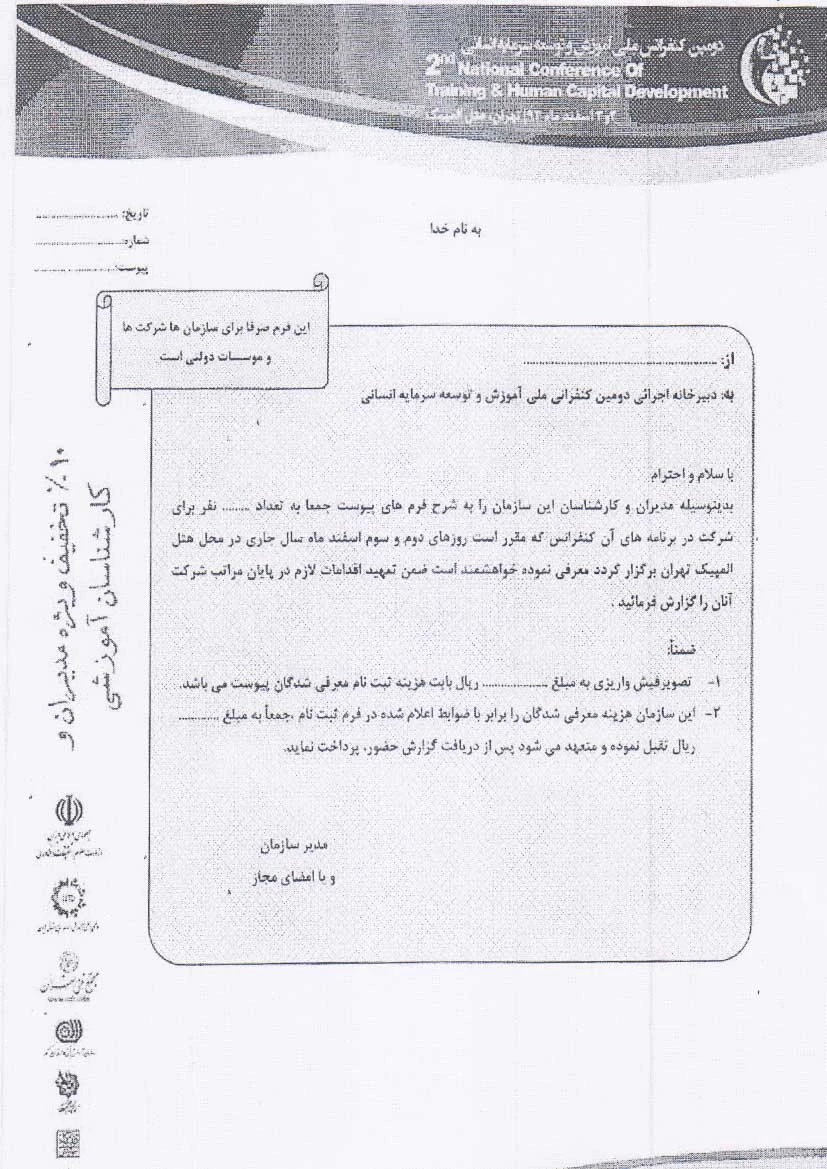 دومین کنفرانس ملی آموزش و توسعه سرمایه انسانی
2nd National Conference Of
Training & Human Capital Development
۲و۳ اسفند ماه ۹۲ تهران، هتل المپیک
تاریخ: ....................
شماره: ....................
پیوست: ....................
به نام خدا
این فرم صرفا برای سازمان ها شرکت ها
و موسسات دولتی است
از: ................................................
به: دبیرخانه اجرائی دومین کنفرانی ملی آموزش و توسعه سرمایه انسانی
با سلام و احترام
بدینوسیله مدیران و کارشناسان این سازمان را به شرح فرم های پیوست جمعا به تعداد ........ نفر برای
شرکت در برنامه های آن کنفرانس که مقرر است روزهای دوم و سوم اسفند ماه سال جاری در محل هتل
المپیک تهران برگزار گردد معرفی نموده خواهشمند است ضمن تمهید اقدامات لازم در پایان مراتب شرکت
آنان را گزارش فرمائید .
ضمناً:
۱- تصویرفیش واریزی به مبلغ .................. ریال بابت هزینه ثبت نام معرفی شدگان پیوست می باشد.
۲- این سازمان هزینه معرفی شدگان را برابر با ضوابط اعلام شده در فرم ثبت نام ،جمعاً به مبلغ ...........
ریال تقبل نموده و متعهد می شود پس از دریافت گزارش حضور، پرداخت نماید.
مدیر سازمان
و یا امضای مجاز
۱۰٪ تخفیف ویژه مدیران و
کارشناسان آموزشی
جمهوری اسلامی ایران
وزارت علوم، تحقیقات و فناوری
مجتمع فنی تهران